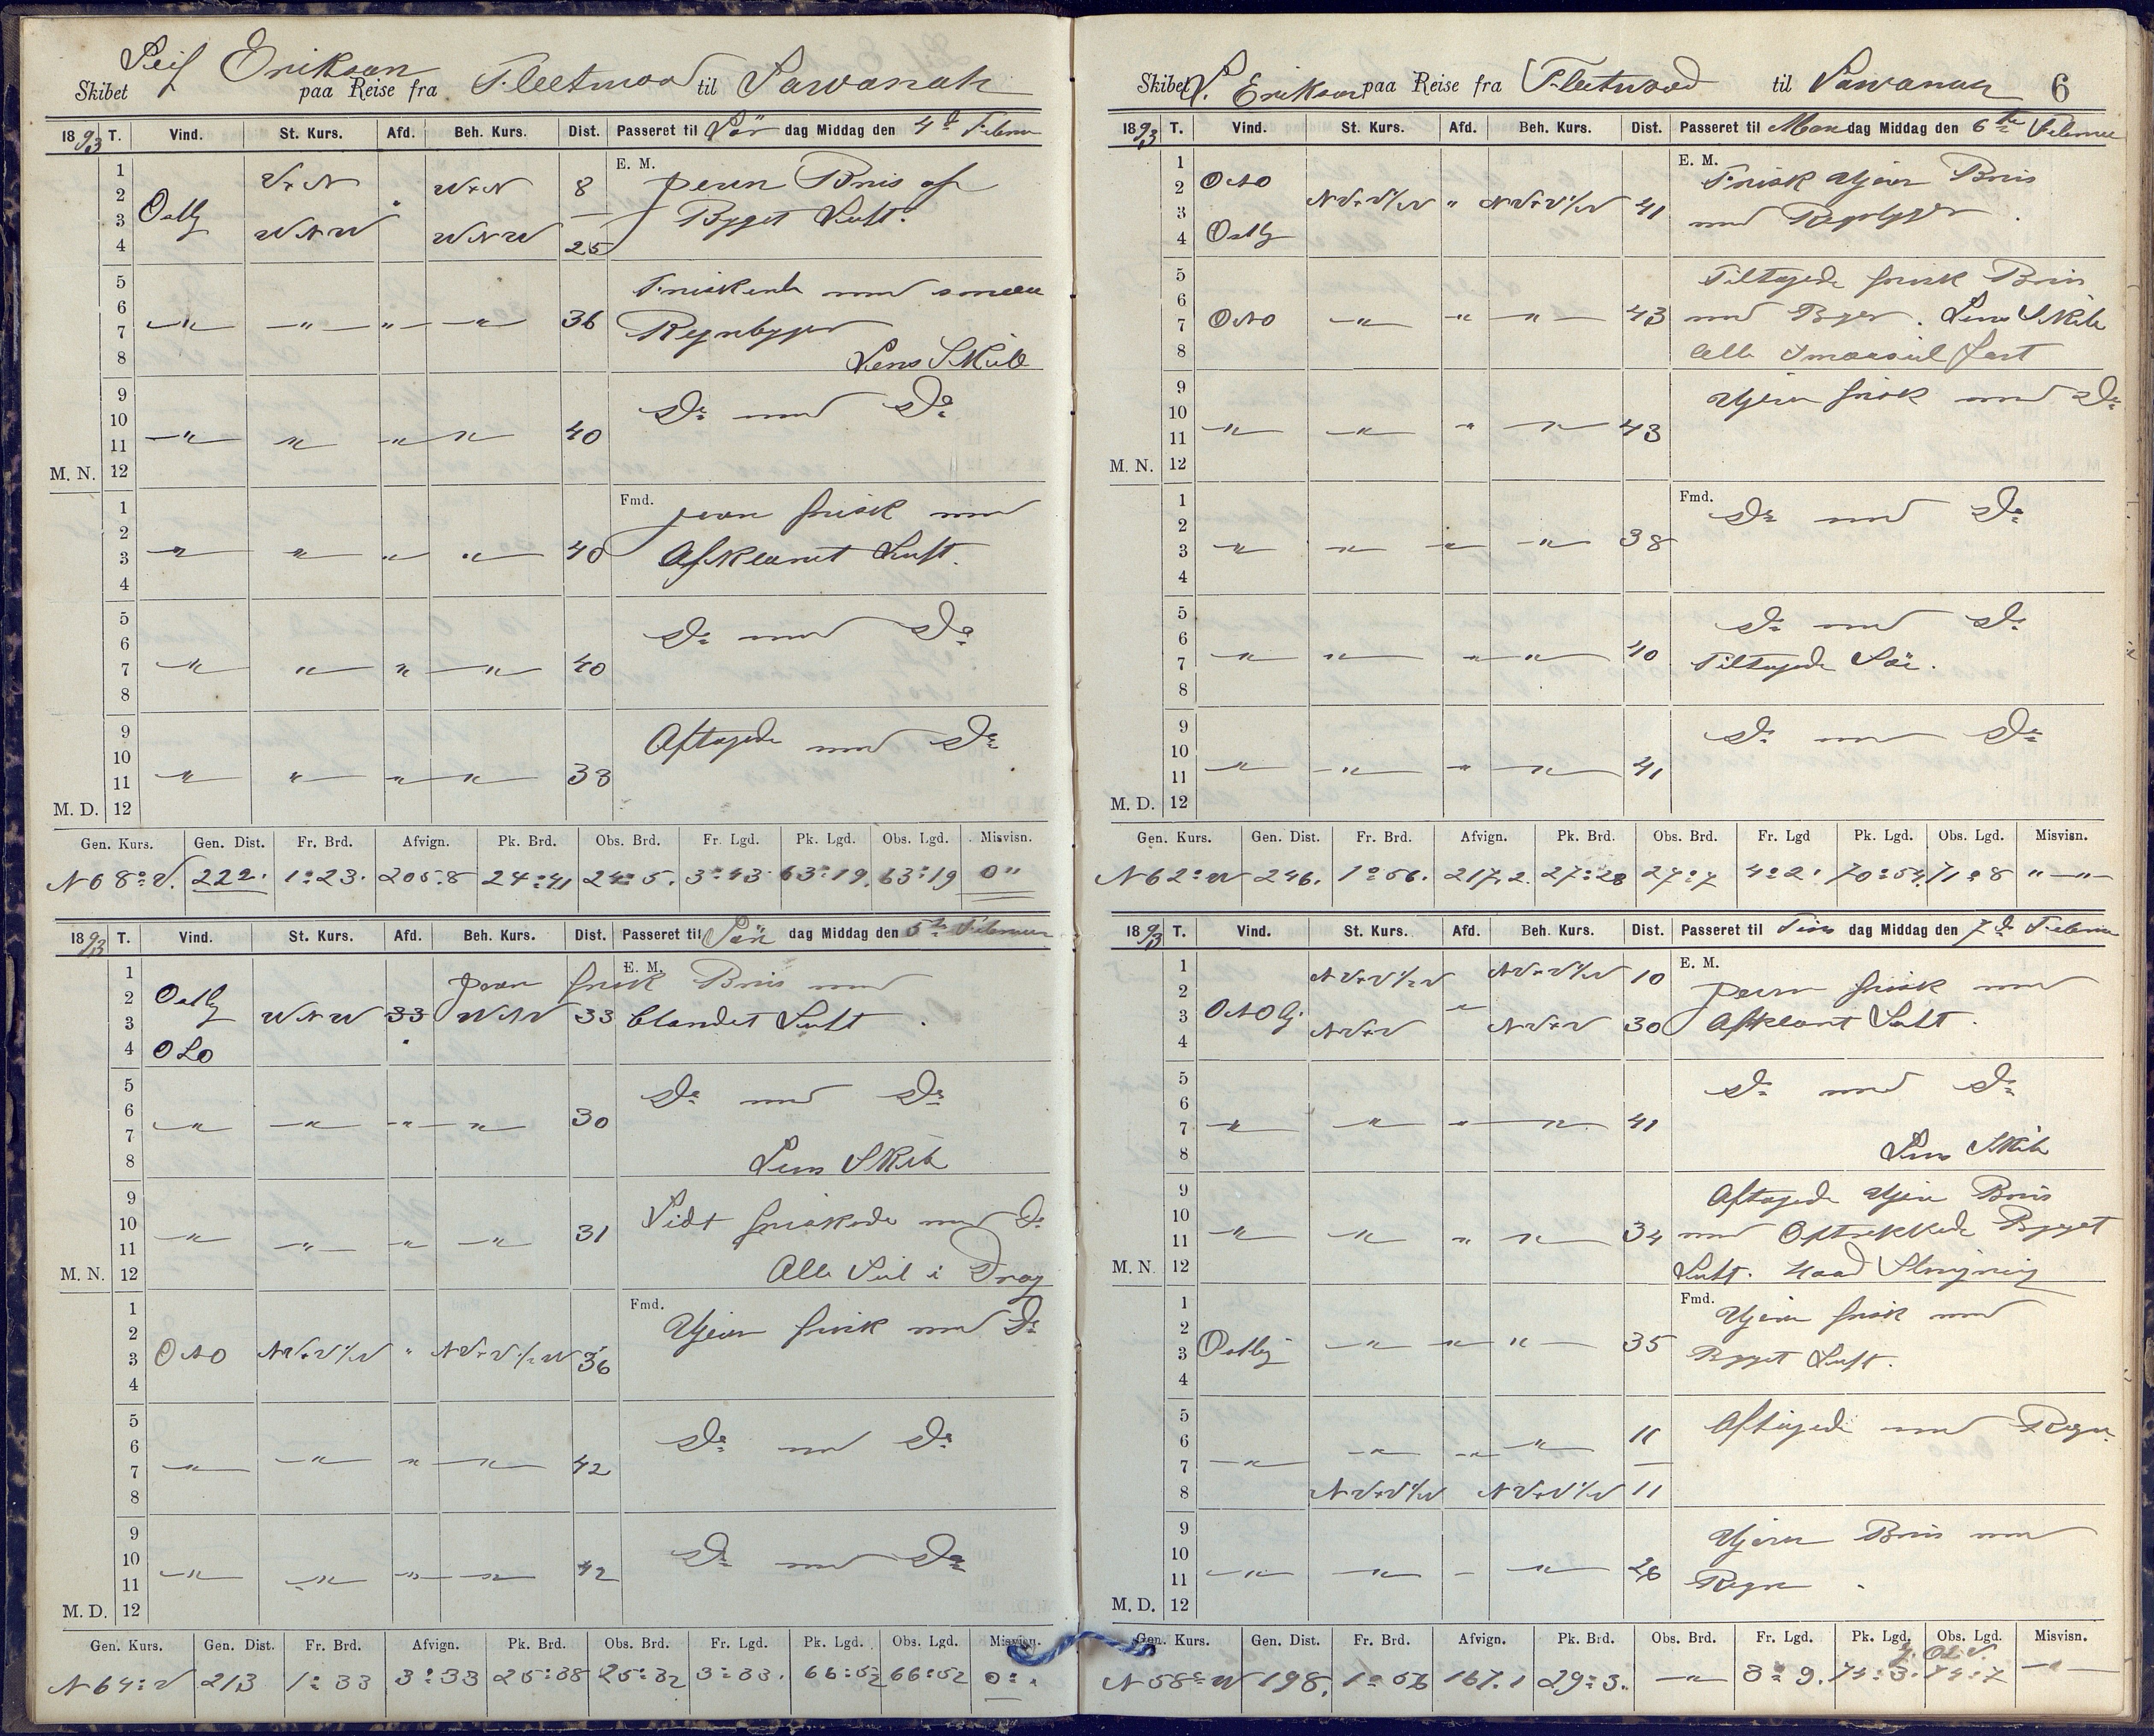 Leif Erikson
Skibet paa Reise fra Fleetwood til Savanah
1893 T. Vind. St. Kurs. Afd. Beh. Kurs. Dist. Passeret til Lör dag Middag den 4de Februar
E. M.
1
2
3
4
Ostlg
V+N
WNW
V+N 8
WNW 25
jevn Bris og
Bygget Luft.
5
6
7
8
36
Friskende med smaa
Regnbyger
Lens Skib
9
10
11
M. N. 12
40
Do med Do
Fmd.
1
2
3
4
40
jevn frisk med
Afklaret Luft.
5
6
7
8
40
Do med Do
9
10
11
M. D. 12
33
Aftagede med Do
Gen. Kurs. Gen. Dist. Fr. Brd. Afvign. Pk. Brd. Obs. Brd. Fr. Lgd. Pk. Lgd. Obs. Lgd. Misvisn.
N68°V. 222. 1°23. 205.8 24°41 24°5. 3°43 63°19. 63°19 0"
1893 T. Vind. St. Kurs. Afd. Beh. Kurs. Dist. Passeret til Sön dag Middag den 5te Februar
E. M.
1
2
3
4
Ostlg
OSO
WNW 33 WNW 33
jevn frisk Bris med
blandet Luft.
5
6
7
8
30
Do med Do
Lens Skib
9
10
11
M. N. 12
31
Lidt friskede med Do
Alle Seil i Drag
Fmd.
1
2
3
4
ONO NV+V½V " NV+V½W 36
Stjern frisk med Do
5
6
7
8
42
Do med Do
9
10
11
M. D. 12
42
Do med Do
Gen. Kurs. Gen. Dist. Fr. Brd. Afvign. Pk. Brd. Obs. Brd. Fr. Lgd. Pk. Lgd. Obs. Lgd. Misvisn.
N64°V 213 1°33 3°33 25°38 25°32 3°33. 66°52 66°52 0°
Skibet L. Erikson paa Reise fra Fleetwood til Savanah 6
1893 T. Vind. St. Kurs. Afd. Beh. Kurs. Dist. Passeret til Man dag Middag den 6te Februar
E. M.
1
2
3
4
ONO
Ostlg
NV+V½V " NV+V½V 41
Frisk Bris
med Regnbyger.
5
6
7
8
ONO 43
Tiltagede frisk Bris
med Byger. Lens Skib
Alle Smaaseil fast
9
10
11
M. N. 12
43
frisk med Do
Fmd.
1
2
3
4
38
Do med Do
5
6
7
8
40
Do med Do
Tiltagede Sö.
9
10
11
M. D. 12
41
Do med Do
Gen. Kurs. Gen. Dist. Fr. Brd. Afvign. Pk. Brd. Obs. Brd. Fr. Lgd Pk. Lgd. Obs. Lgd. Misvisn.
N62°W 246. 1°56. 217.2. 27°28 27°7 4°2' 70°54. 71°8 "
1893 T. Vind. St. Kurs. Afd. Beh. Kurs. Dist. Passeret til Tirs dag Middag den 7de Februar
E. M.
1
2
3
4
ONOlg
NV+V½V NV+V½V 10
NV+V NV+V 30
jevn frisk med
Afklart Luft.
5
6
7
8
41
Do med Do
Lens Skib
9
10
11
M. N. 12
34
Aftagede Bris
med Bygget
Luft.
Fmd.
1
2
3
4
Ostlig 35
frisk med
Bygget Luft.
5
6
7
8
11
NV+V½V NV+V½V 11
Aftagede med Regn.
9
10
11
M. D. 12
26
Bris med
Regn.
Gen. Kurs. Gen. Dist. Fr. Brd. Afvign. Pk. Brd. Obs. Brd. Fr. Lgd. Pk. Lgd. Obs. Lgd. Misvisn.
N58°W 198. 1°56 167.1 29°3. 3°9. 74°3. 74°7